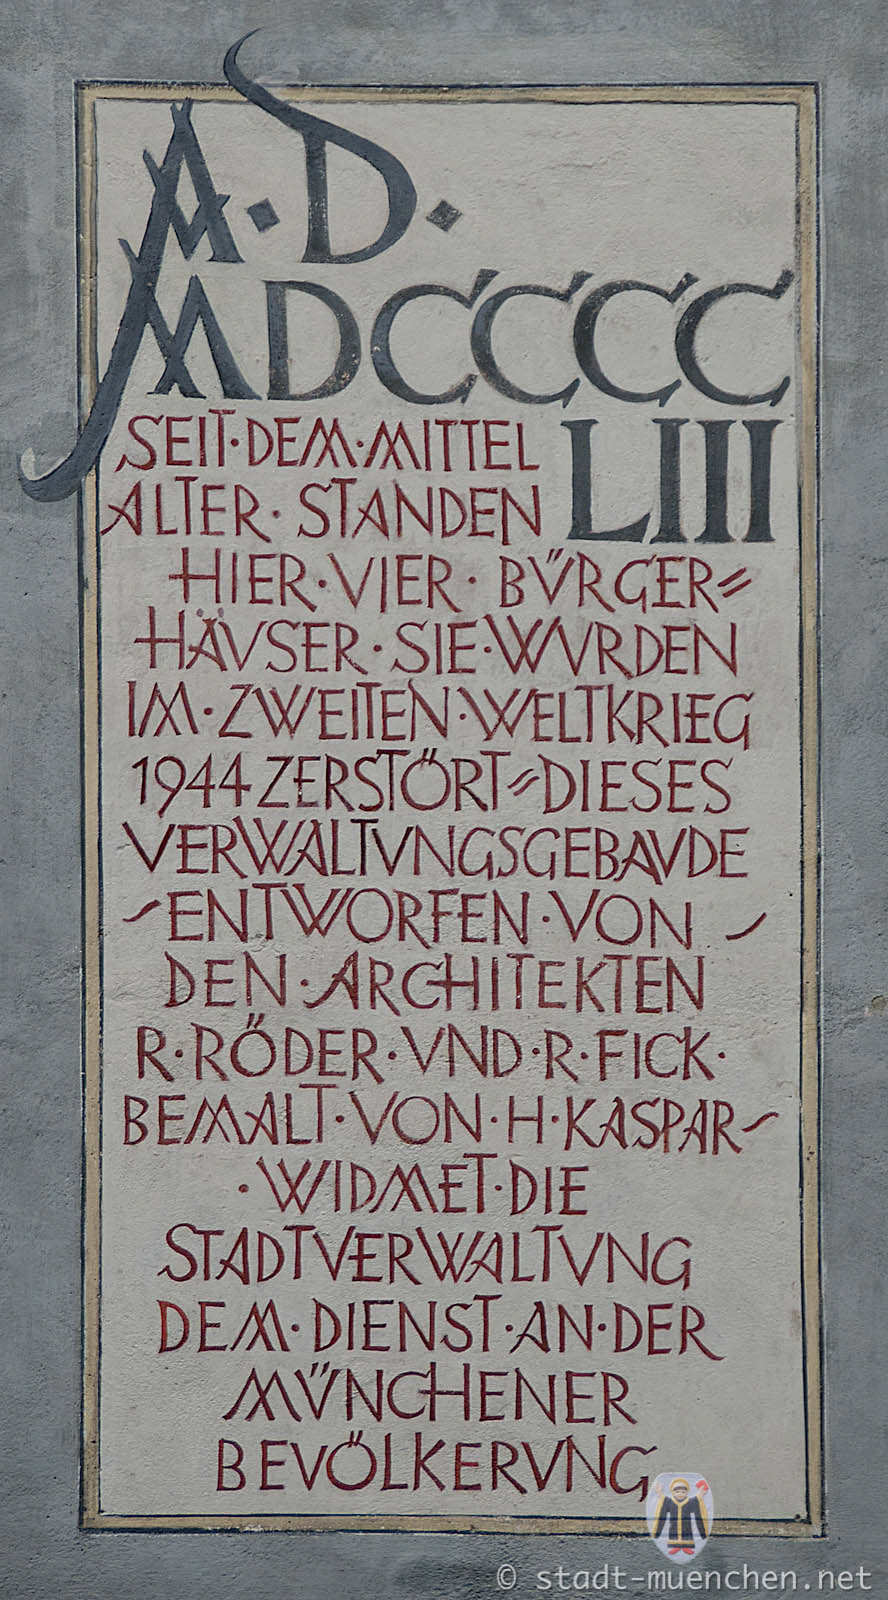 A·D·
MDCCCC
LIII
SEIT·DEM·MITTEL
ALTER·STANDEN
HIER·VIER·BÜRGER=
HÄVSER·SIE·WVRDEN
IM·ZWEITEN·WELTKRIEG
1944 ZERSTÖRT=DIESES
VERWALTVNGSGEBAVDE
-ENTWORFEN·VON-
DEN·ARCHITEKTEN
R·RÖDER·VND·R·FICK·
BEMALT·VON·H·KASPAR-
·WIDMET·DIE
STADTVERWALTVNG
DEM·DIENST·AN·DER
MÜNCHENER
BEVÖLKERVNG
© stadt-muenchen.net